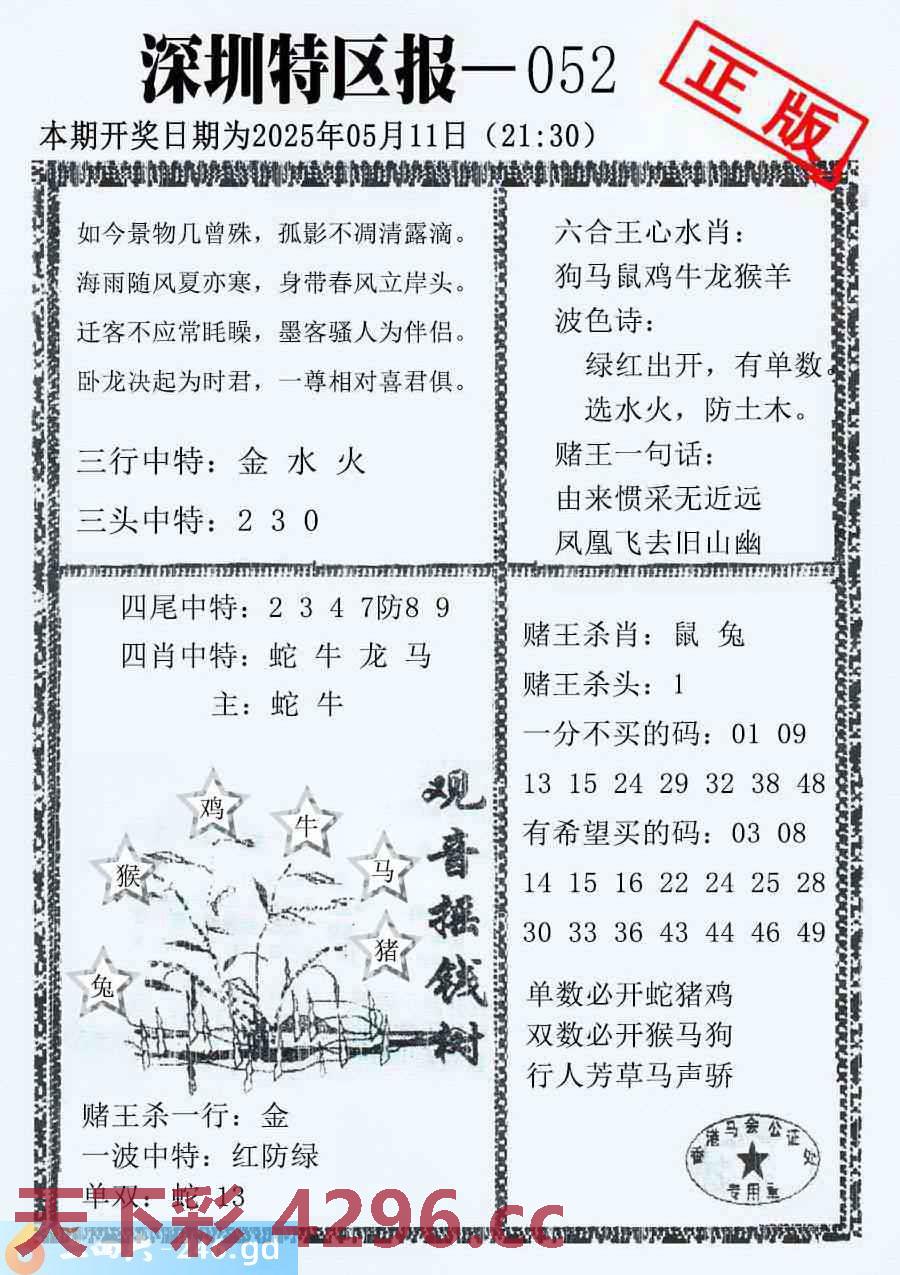 深圳特区报—052
正版
本期开奖日期为2025年05月11日（21:30）
如今景物几曾殊，孤影不凋清露滴。
海雨随风夏亦寒，身带春风立岸头。
迁客不应常眊矂，墨客骚人为伴侣。
卧龙决起为时君，一尊相对喜君俱。
三行中特：金 水 火
三头中特：2 3 0
六合王心水肖：
狗马鼠鸡牛龙猴羊
波色诗：
绿红出开，有单数。
选水火，防土木。
赌王一句话：
由来惯采无近远
凤凰飞去旧山幽
四尾中特：2 3 4 7防8 9
四肖中特：蛇 牛 龙 马
主：蛇 牛
观音摇钱树
鸡
牛
猴
马
猪
兔
赌王杀一行：金
一波中特：红防绿
单双：蛇 13
赌王杀肖：鼠 兔
赌王杀头：1
一分不买的码：01 09
13 15 24 29 32 38 48
有希望买的码：03 08
14 15 16 22 24 25 28
30 33 36 43 44 46 49
单数必开蛇猪鸡
双数必开猴马狗
行人芳草马声骄
香港马会公证处
专用章
天下彩 4296.cc